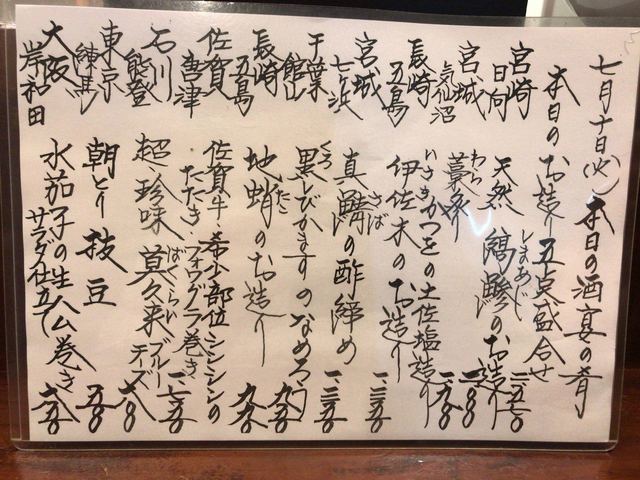 七月十日(火) 本日の酒宴の肴
本日のお造り五点盛合せ 二、五七〇
宮崎 日向 天然 縞鯵のお造り
しまあじ
宮城 気仙沼 藁炙りかつをの土佐塩造り
わら
長崎 五島 伊佐木のお造り
いさき
宮城 七ヶ浜 真鯖の酢締め
さば
千葉 館山 黒しびかますのなめろう 九五〇
くろ
長崎 五島 地蛸のお造り 九八〇
たこ
佐賀 唐津 佐賀牛 希少部位シンシンの
たたき フォワグラ巻き
石川 能登 超、珍味 莫久来 ブルーチーズ
ばくらい
東京 練馬 朝とり 枝豆 五八〇
大阪 岸和田 水茄子の生ハム巻き
サラダ仕立て